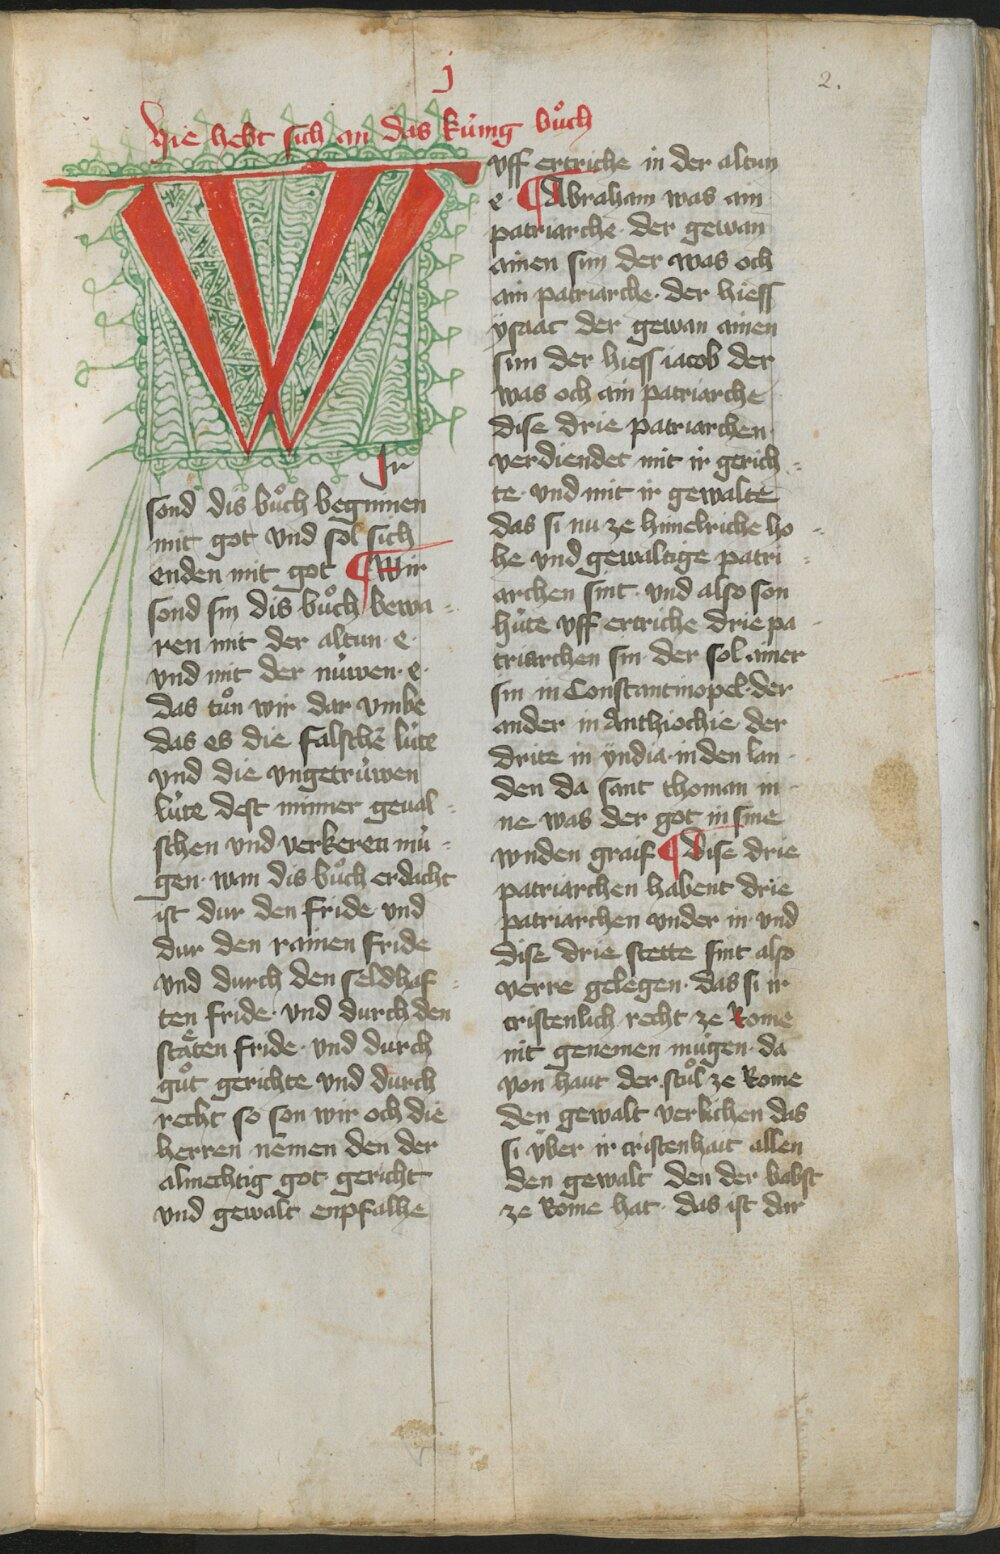 j
2.
Hie hebt sich an das kùnig bůch
WIr
sond dis bůch beginnen
mit got vnd sol sich
enden mit got ¶ Wir
sond sin dis bůch bewa-
ren mit der altun · e ·
vnd mit der nùwen · e ·
das tůn wir dar vmbe
das es die falschē lùte
vnd die vngetrùwen
lùte dest minner geual-
schen vnd verkeren mù-
gen · wan dis bůch erdacht
ist dur den fride vnd
dur den rainen fride
vnd durch den seldhaf-
ten fride · vnd durch den
stäten fride · vnd durch
gůt gerichte vnd durch
recht so son wir och die
herren nemen den der
almechtig got gericht
vnd gewalt enpfalhe
vff ertriche in der altun
e · ¶ Abraham was ain
patriarche · der gewan
ainen sun der was och
ain patriarche · der hiess
ysaac der gewan ainen
sun der hiess iacob der
was och ain patriarche
dise drie patriarchen ·
verdiendet mit ir gerich-
te · vnd mit ir gewalte
das si nu ze himelriche ho-
he vnd gewaltige patri-
archen sint · vnd also son
hùte vff ertriche drie pa-
triarchen sin · der sol ainer
sin in Constantinopel · der
ander in Anthiochie · der
drite in yndia · in den lan-
den da sant thoman in-
ne was der got in sine
wnden graif ¶ Dise drie
patriarchen habent drie
patriarchen vnder in · vnd
dise drie stette sint also
verre gelegen · das si ir
cristenlich recht ze Rome
nit genemen mùgen · da
von haut der stůl ze Rome
den gewalt verlichen das
si ùber ir cristenhait allen
den gewalt den der babst
ze Rome hat · das ist dar